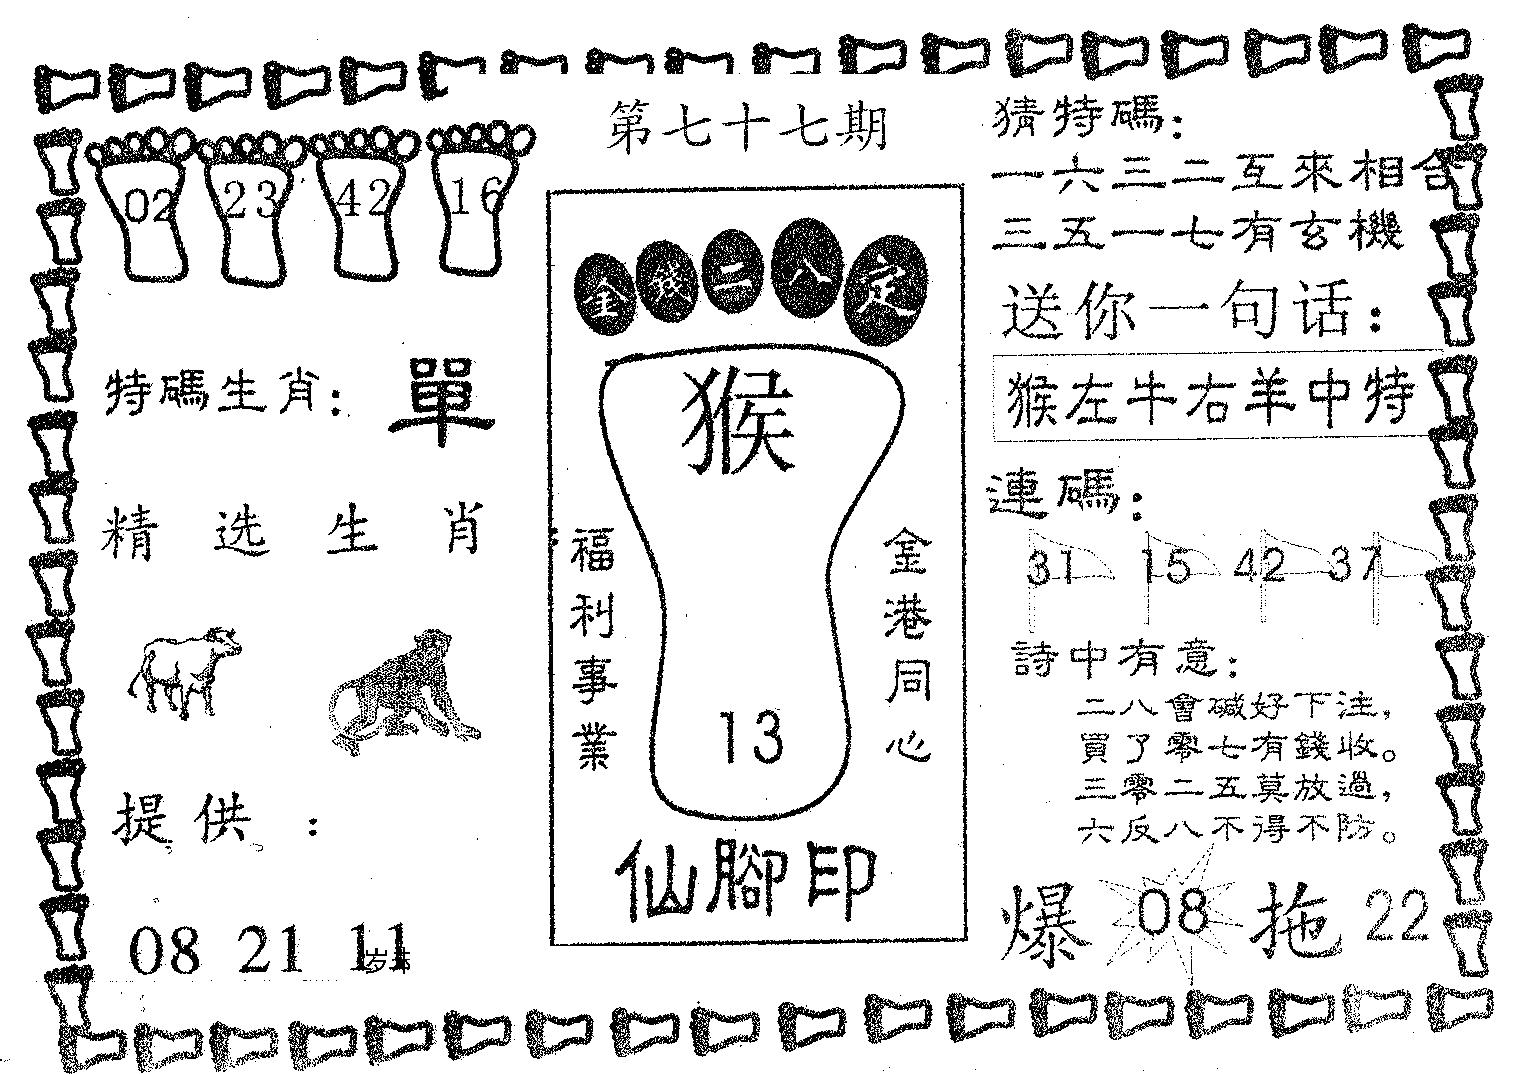 第七十七期
02 23 42 16
特碼生肖：單
精选生肖：
提供：
08 21 11
金錢二八定
猴
福利事業
金港同心
13
仙腳印
猜特碼：
一六三二互來相合
三五一七有玄機
送你一句话：
猴左牛右羊中特
連碼：
31 15 42 37
詩中有意：
二八會碱好下注，
買了零七有錢收。
三零二五莫放過，
六反八不得不防。
爆 08 拖 22